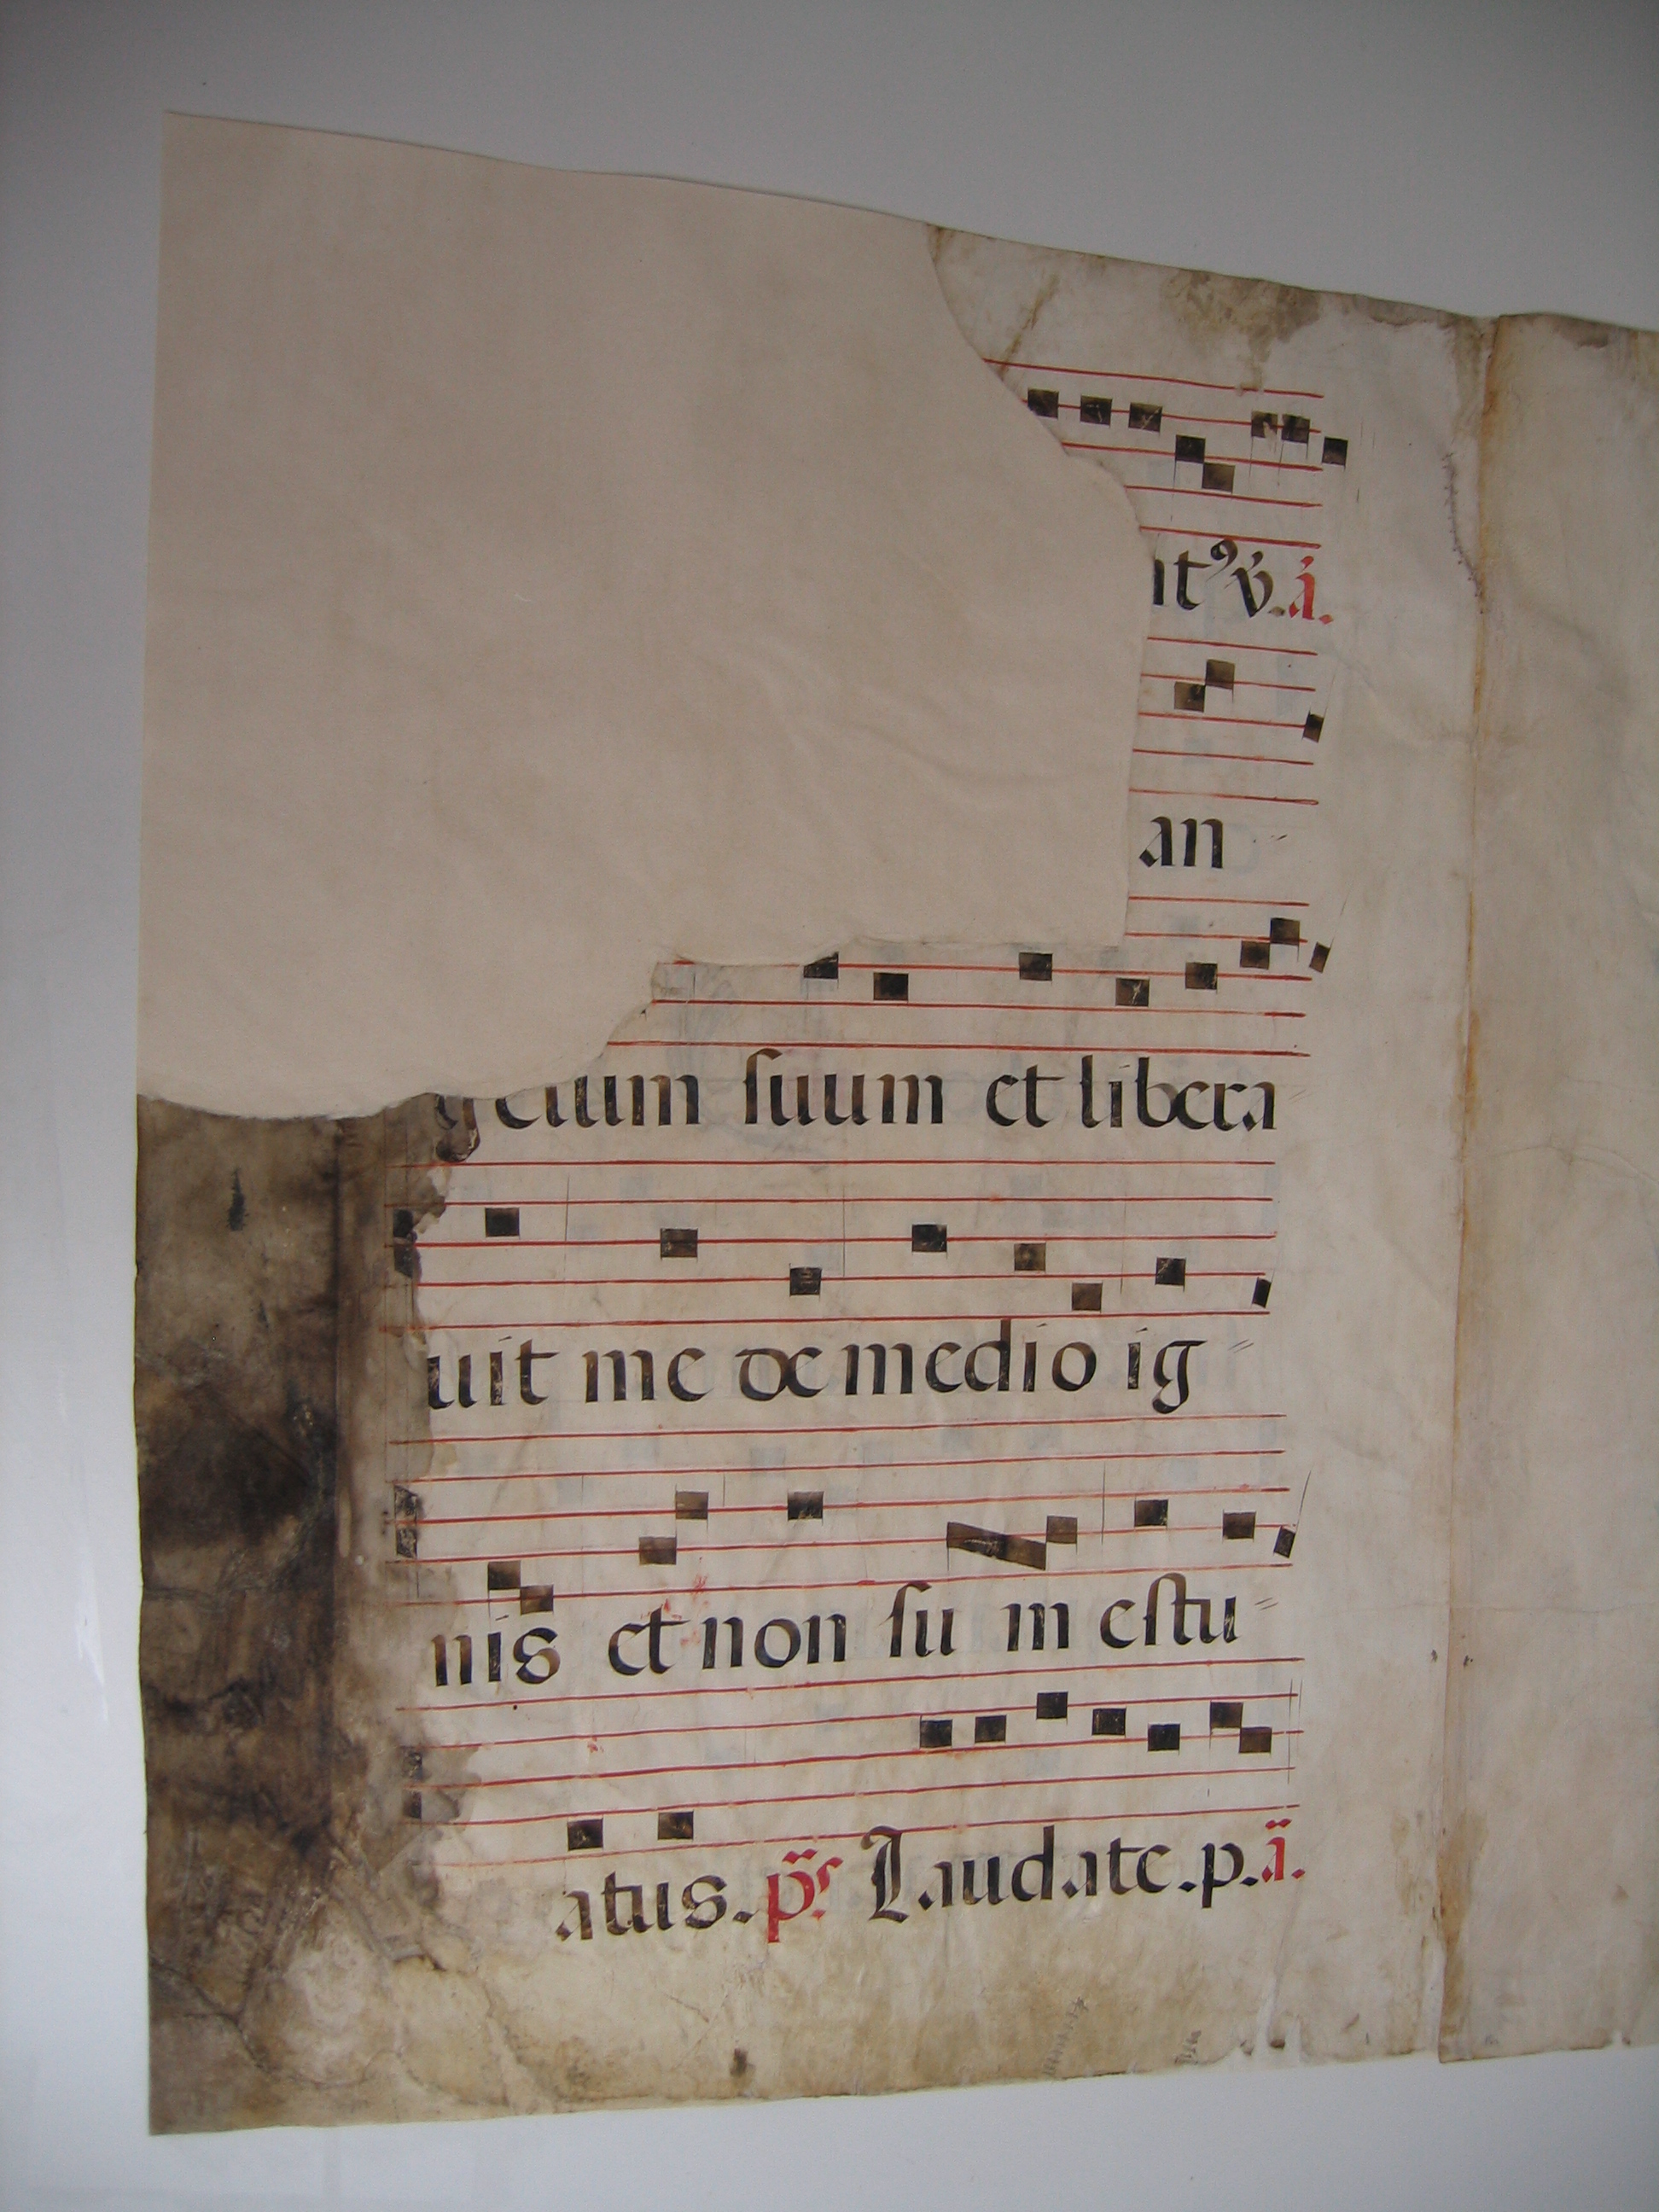 v̇. a.
an
gelum suum et libera
uit me de medio ig
nis et non su m estu
atus. ps Laudate. p. a.